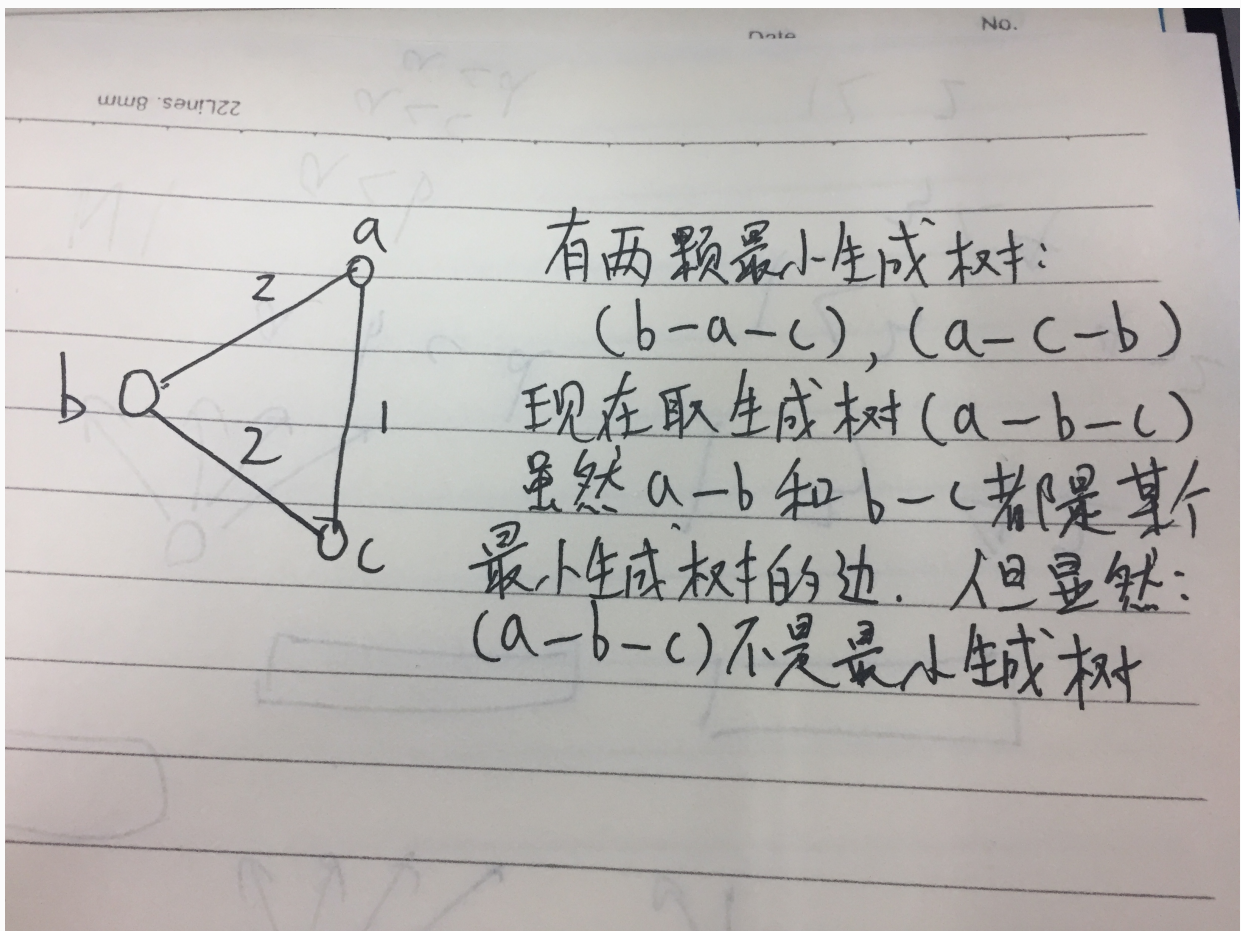 Date
No.
22Lines. 8mm
a
2
b
1
2
c
有两颗最小生成树:
(b-a-c), (a-c-b)
现在取生成树(a-b-c)
虽然a-b和b-c都是某个
最小生成树的边. 但显然:
(a-b-c)不是最小生成树